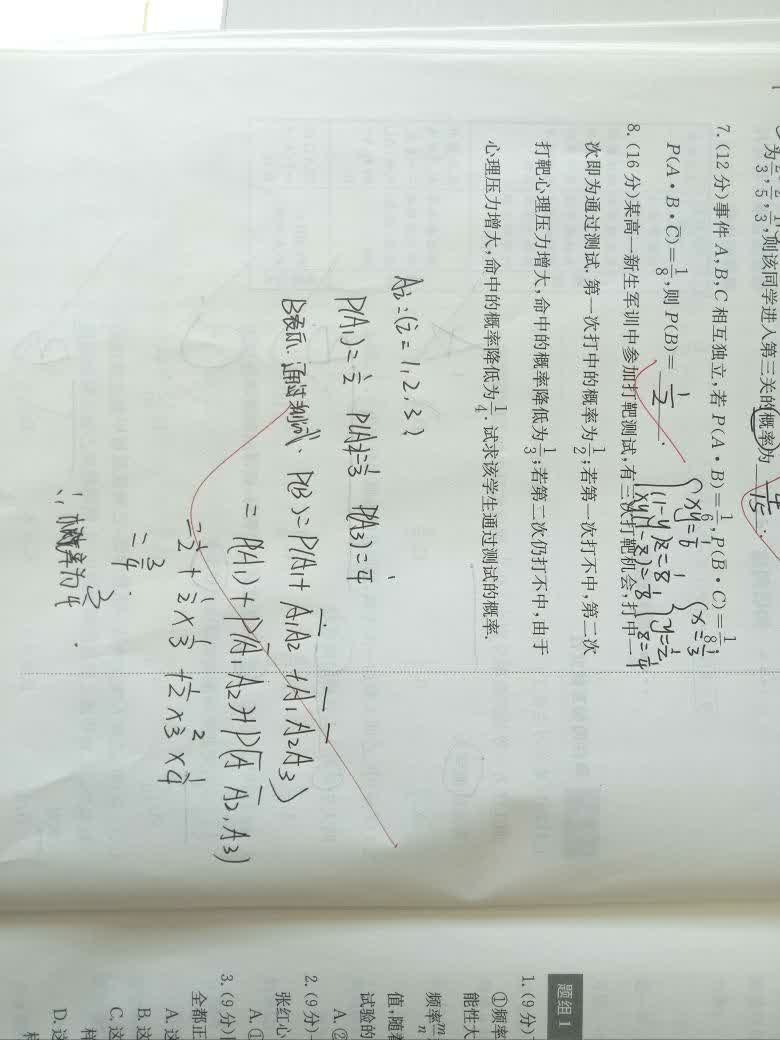 为2/3,2/5,1/3,则该同学进入第三关的概率为 4/15.
7.(12分)事件A,B,C相互独立,若P(A·B)=1/6,P(B̄·C)=1/8,
P(A·B·C̄)=1/8,则P(B)= 1/2 .
xy=1/6
(1-y)z=1/8
xy(1-z)=1/8
x=1/3
y=1/2
z=1/4
8.(16分)某高一新生军训中参加打靶测试,有三次打靶机会,打中一
次即为通过测试.第一次打中的概率为1/2;若第一次打不中,第二次
打靶心理压力增大,命中的概率降低为1/3;若第二次仍打不中,由于
心理压力增大,命中的概率降低为1/4.试求该学生通过测试的概率.
Ai:(i=1,2,3)
P(A1)=1/2 P(A2)=1/3 P(A3)=1/4
B表示:通过测试. P(B)=P(A1+Ā1A2+Ā1Ā2A3)
=P(A1)+P(Ā1A2)+P(Ā Ā2,A3)
=1/2+1/2×1/3+1/2×2/3×1/4
=3/4.
∴概率为3/4.
题组1
1.(9分)
①频率
能性大
频率m/n
值,随着
试验的
A.②
2.(9分)
张红心
A.①
3.(9分)
全都正
A.这
B.这
C.这
样
D.这
样